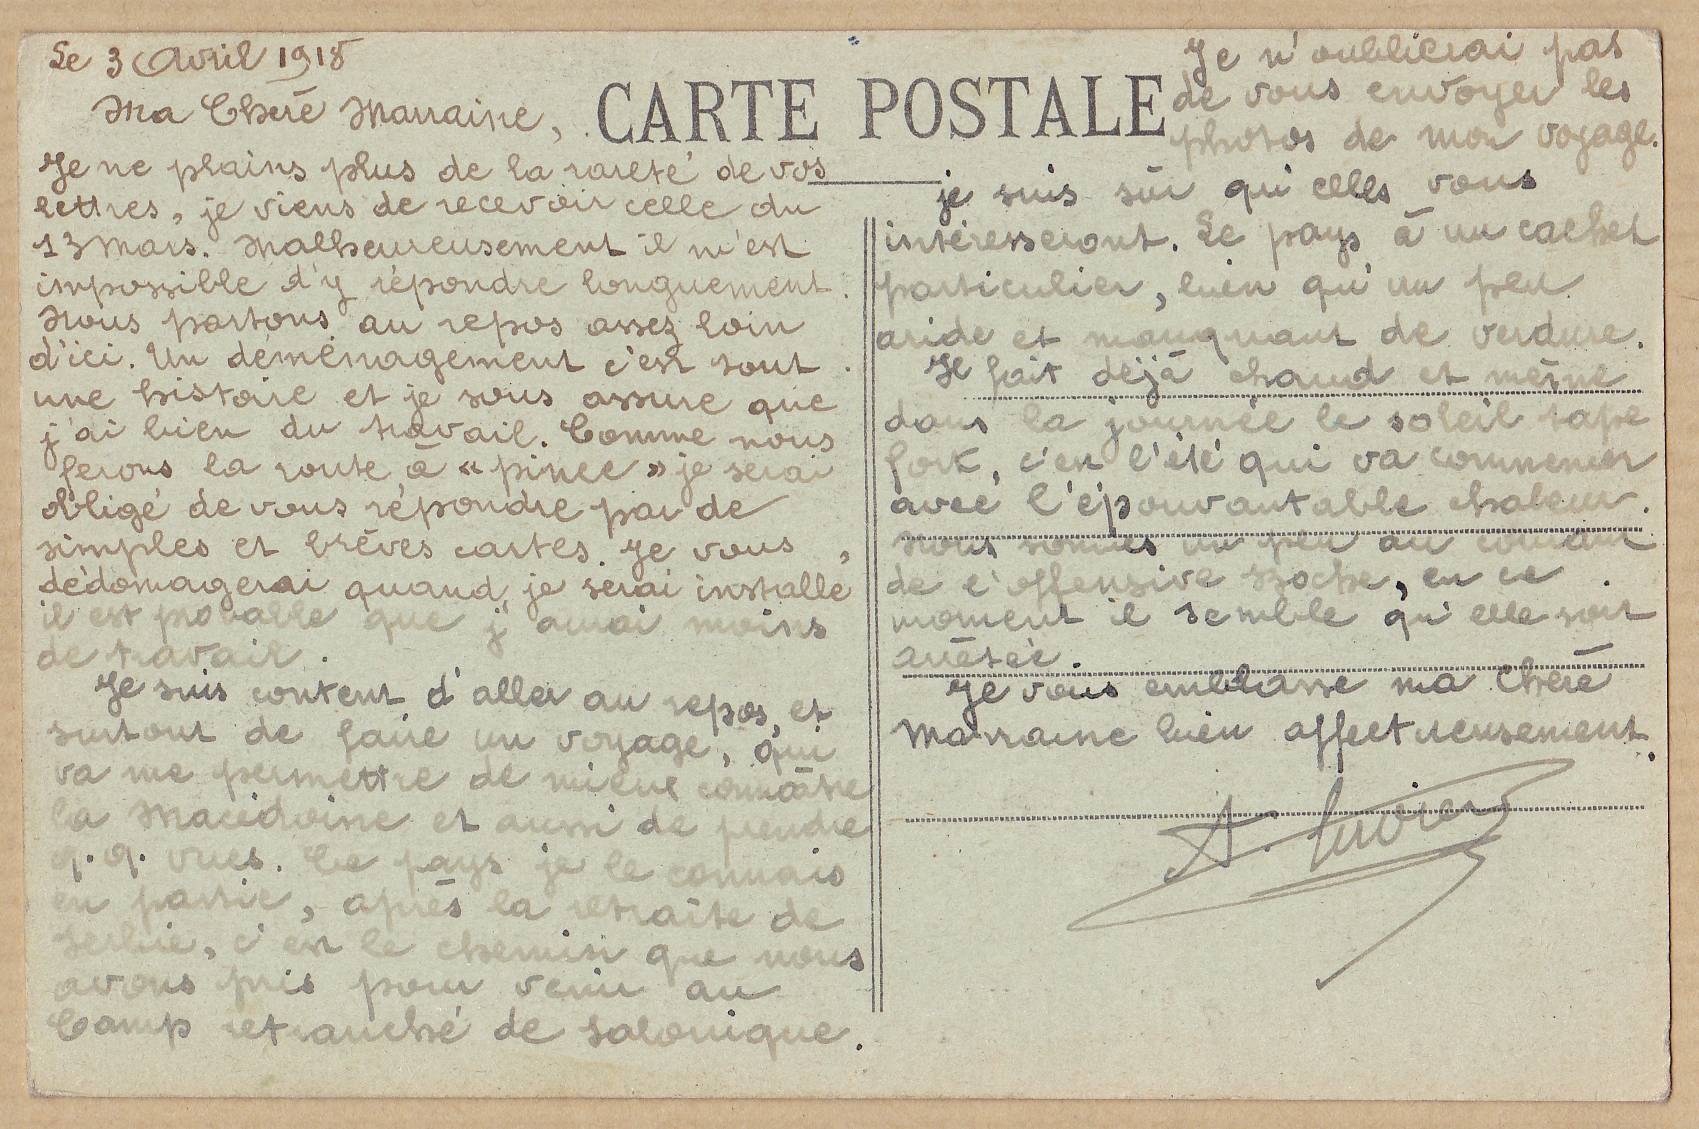 Le 3 Avril 1918
Ma Chère Marraine,
CARTE POSTALE
Je ne plains plus de la rareté de vos
lettres, je viens de recevoir celle du
13 Mars. Malheureusement il m'est
impossible d'y répondre longuement.
Nous partons au repos assez loin
d'ici. Un déménagement c'est tout
une histoire et je vous assure que
j'ai bien du travail. Comme nous
ferons la route à « pince » je serai
obligé de vous répondre par de
simples et brèves cartes. Je vous
dédomagerai quand je serai installé,
il est probable que j'aurai moins
de travail.
Je suis content d'aller au repos, et
surtout de faire un voyage, qui
va me permettre de mieux connaître
la Macédoine et aussi de prendre
q.q. vues. Ce pays je le connais
en partie, après la retraite de
Serbie, c'est le chemin que nous
avons pris pour venir au
Camp retranché de Salonique.
Je n'oublierai pas
de vous envoyer les
photos de mon voyage.
je suis sûr qu'elles vous
intéresseront. Le pays à un cachet
particulier, bien qu'un peu
aride et manquant de verdure.
Il fait déjà chaud et même
dans la journée le soleil tape
fort, c'est l'été qui va commencer
avec l'épouvantable chaleur.
Nous sommes un peu au courant
de l'offensive Boche, en ce
moment il semble qu'elle soit
arrêtée.
Je vous embrasse ma Chère
Marraine bien affectueusement.
A.